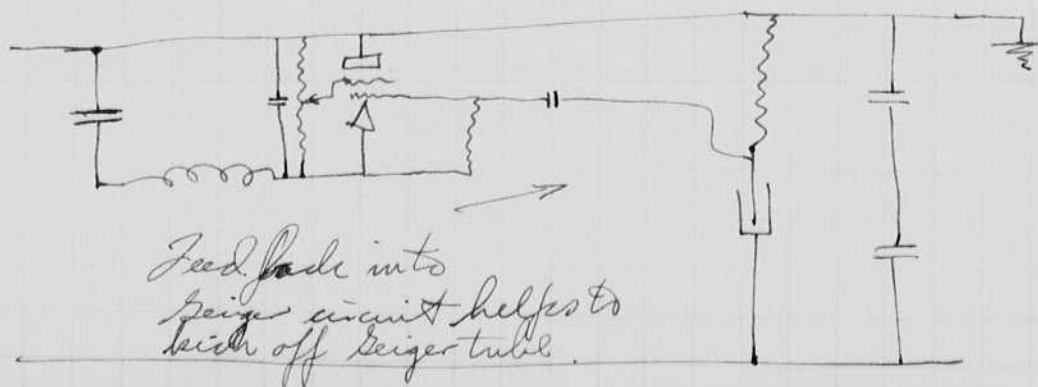 Feed back into
Geiger circuit helps to
kick off Geiger tube.